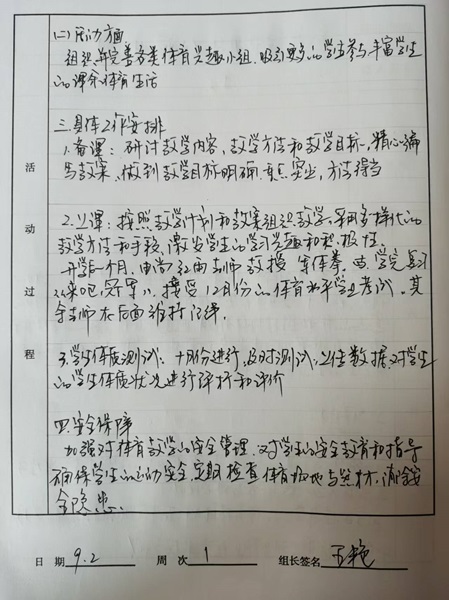 (二)活动方面
组织并完善各类体育兴趣小组,吸引更多的学生参与,丰富学生
的课余体育生活
三.具体工作安排
1.备课:研讨教学内容、教学方法和教学目标,精心编
写教案,做到教学目标明确,重点突出,方法得当
活动过程
2.上课:按照教学计划和教案组织教学,采用多样化的
教学方法和手段,激发学生的学习兴趣和积极性。
开学后一个月,由尚红两老师教授军体拳
接受12月份的体育水平学业考试。其
余老师在后面维持纪律。
3.学生体质测试:十月份进行,及时测试,上传数据,对学生
的学生体质状况进行评析和评价
四.安全保障
加强对体育教学的安全管理,对学生的安全教育和指导
确保学生的运动安全,定期检查体育场地与器材,消除安
全隐患.
日 期 9.2 周 次 1 组长签名 王艳